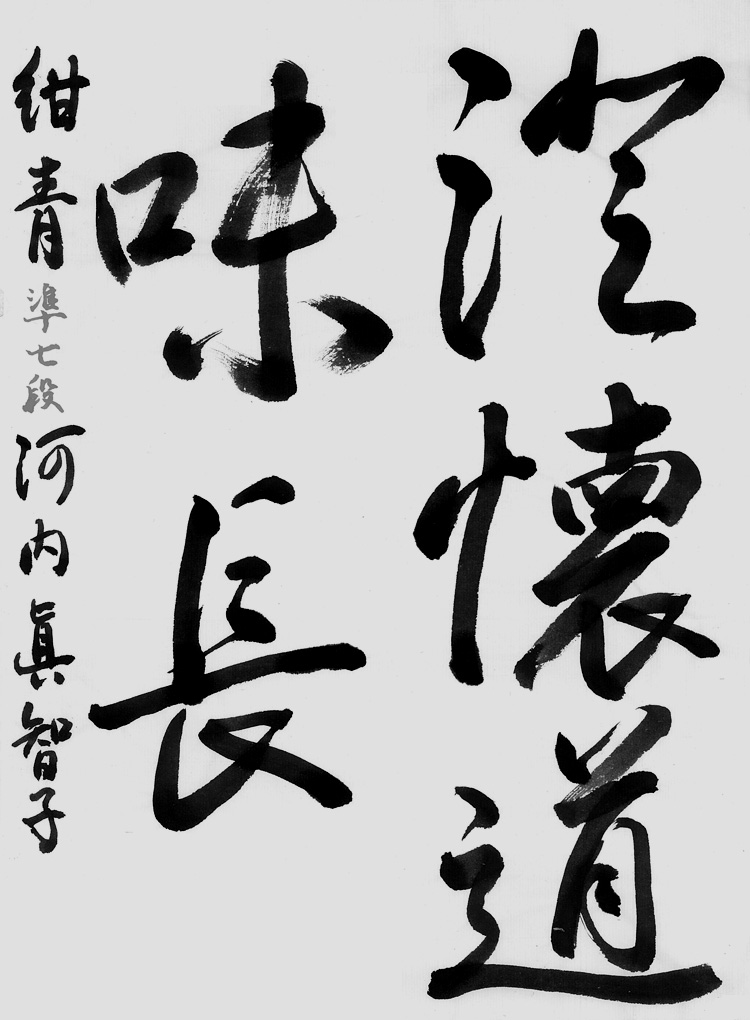 澄懐道
味長
紺青準七段河内眞智子